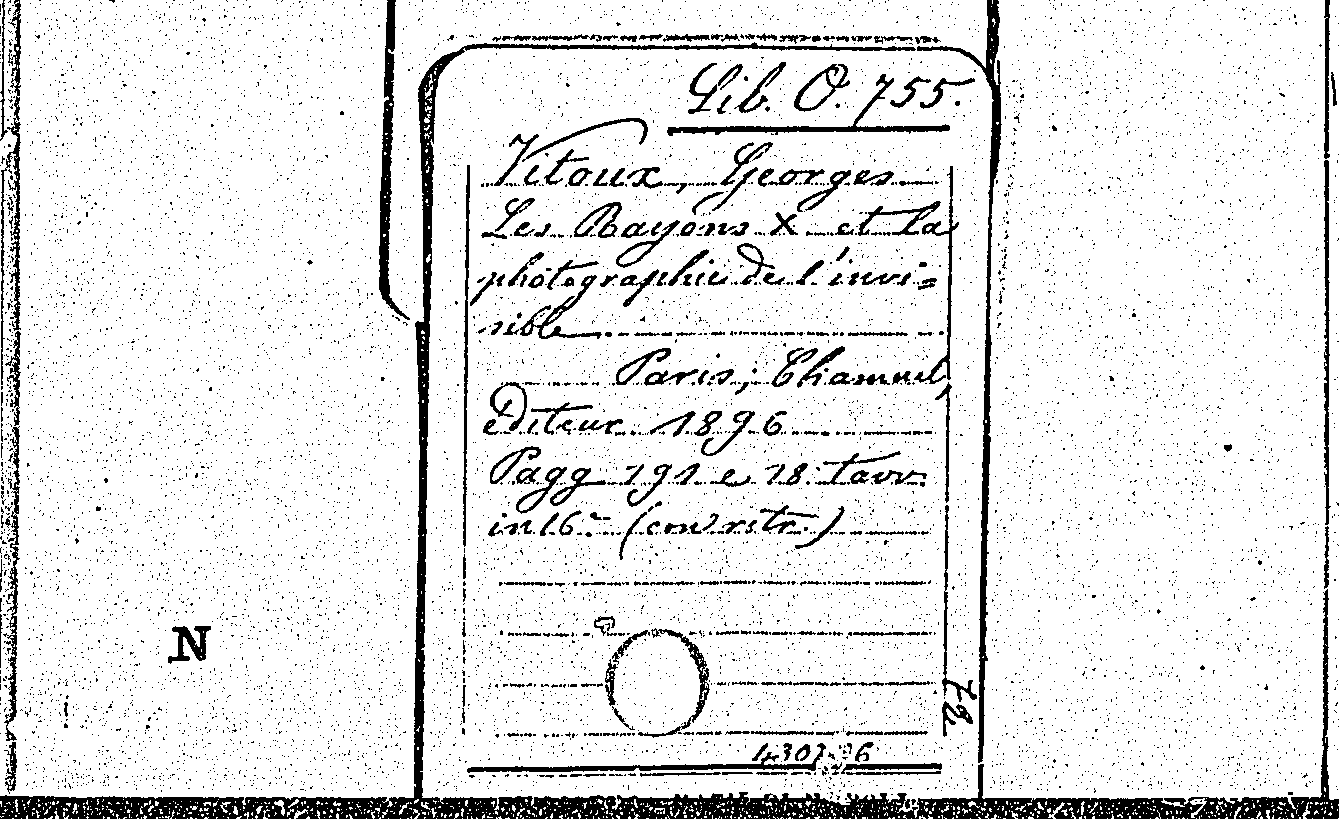 Lib. O. 755.
Vitoux, Georges
Les Rayons X et la
photographie de l'invi=
sible
Paris, Chamuel,
editeur. 1896
Pagg 191 e 18 tavv.
in 16º (con ritr.)
N